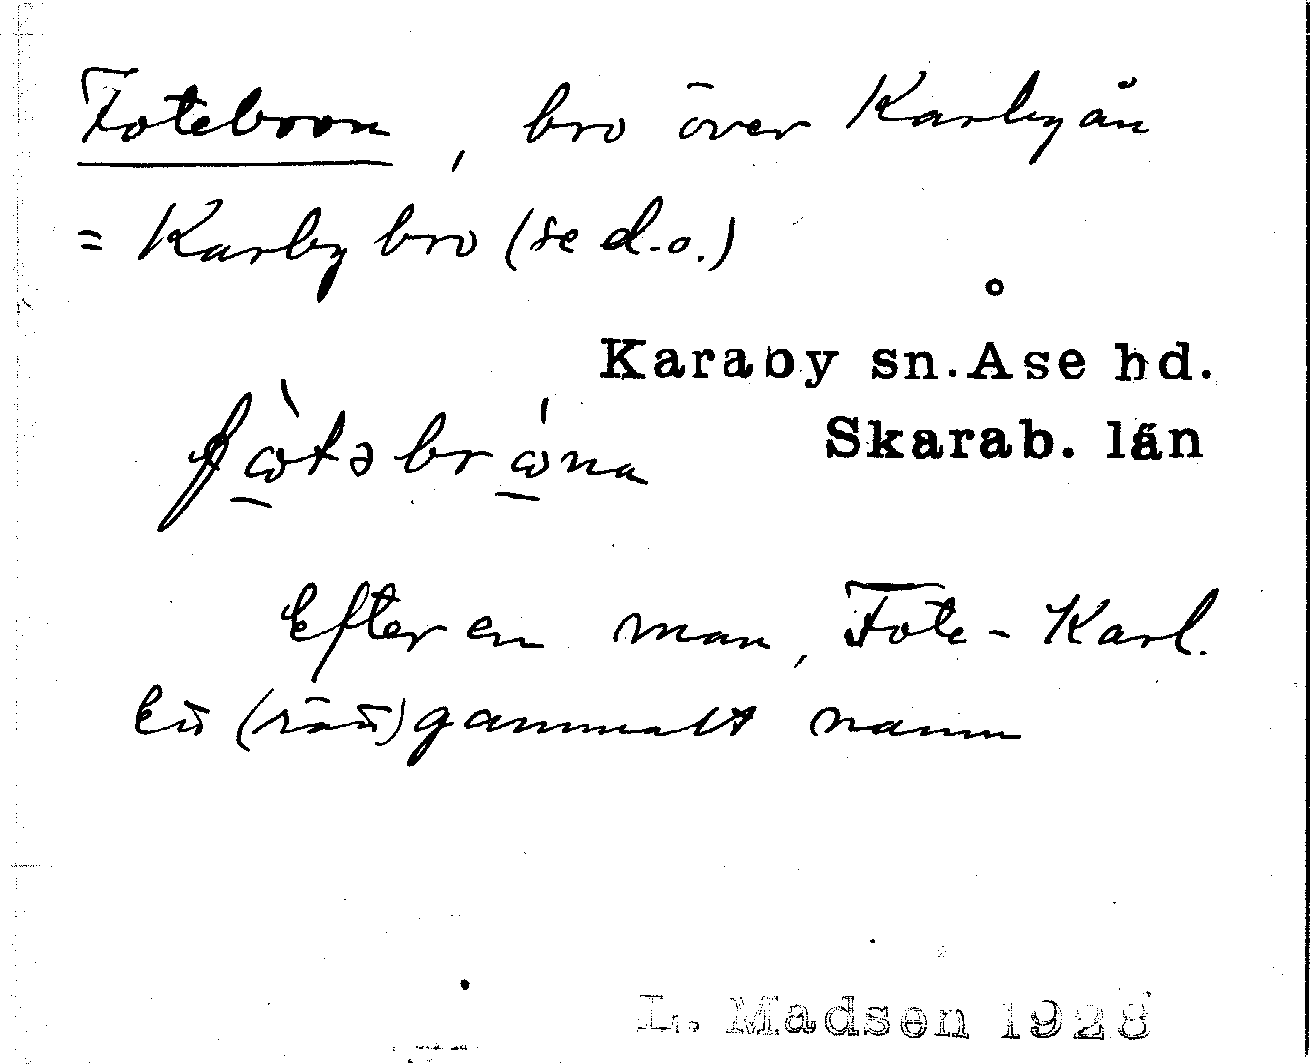 Fotebron, bro över Karbyån
= Karby bro (se d.o.)
Karaby sn. Åse hd.
Skarab. län
fὼ̱təbrώ̱na
Efter en man, Fote-Karl.
Ett gammalt namn
L. Madsen 1928